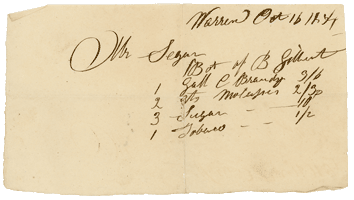 Warren Oct 16
Mr Segar
Bot of B Gilbert
1 Gall C Brandy 3/6
2 qts Molasses 2/3
3 Sugar
1 Tobaco 1/2